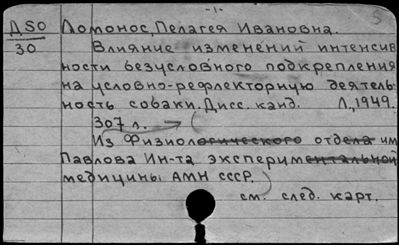 - 1 -
Д50 Ломонос, Пелагея Ивановна.
30 Влияние изменений интенсив
ности безусловного подкрепления
на условно-рефлекторную деятель-
ность собаки. Дисс. канд. Л, 1949.
307 л.
Из Физиологического отдела им
Павлова Ин-та экспериментальной
медицины АМН СССР.
см. след. карт.